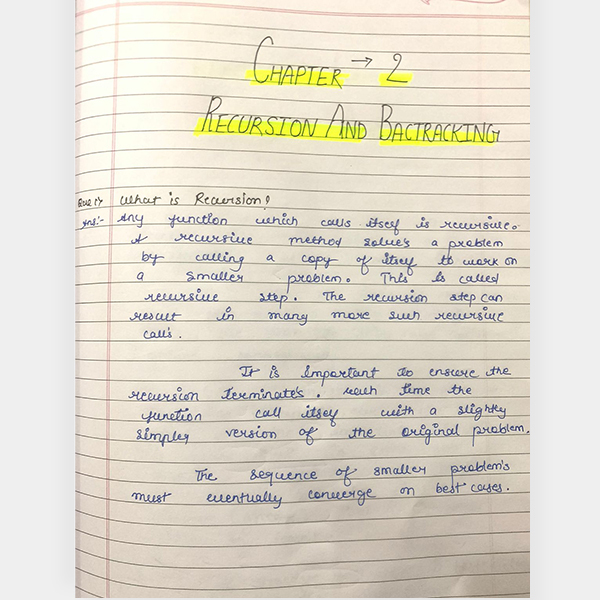 CHAPTER → 2
RECURSION AND BACTRACKING
Que 1:> What is Recursion?
Ans:- Any function which calls itself is recursive.
A recursive method solve's a problem
by calling a copy of itself to work on
a smaller problem. This is called
recursive step. The recursion step can
result in many more such recursive
call's.
It is important to ensure the
recursion terminate's. each time the
function call itself with a slightly
simpler version of the original problem.
The sequence of smaller problem's
must eventually converge on best cases.